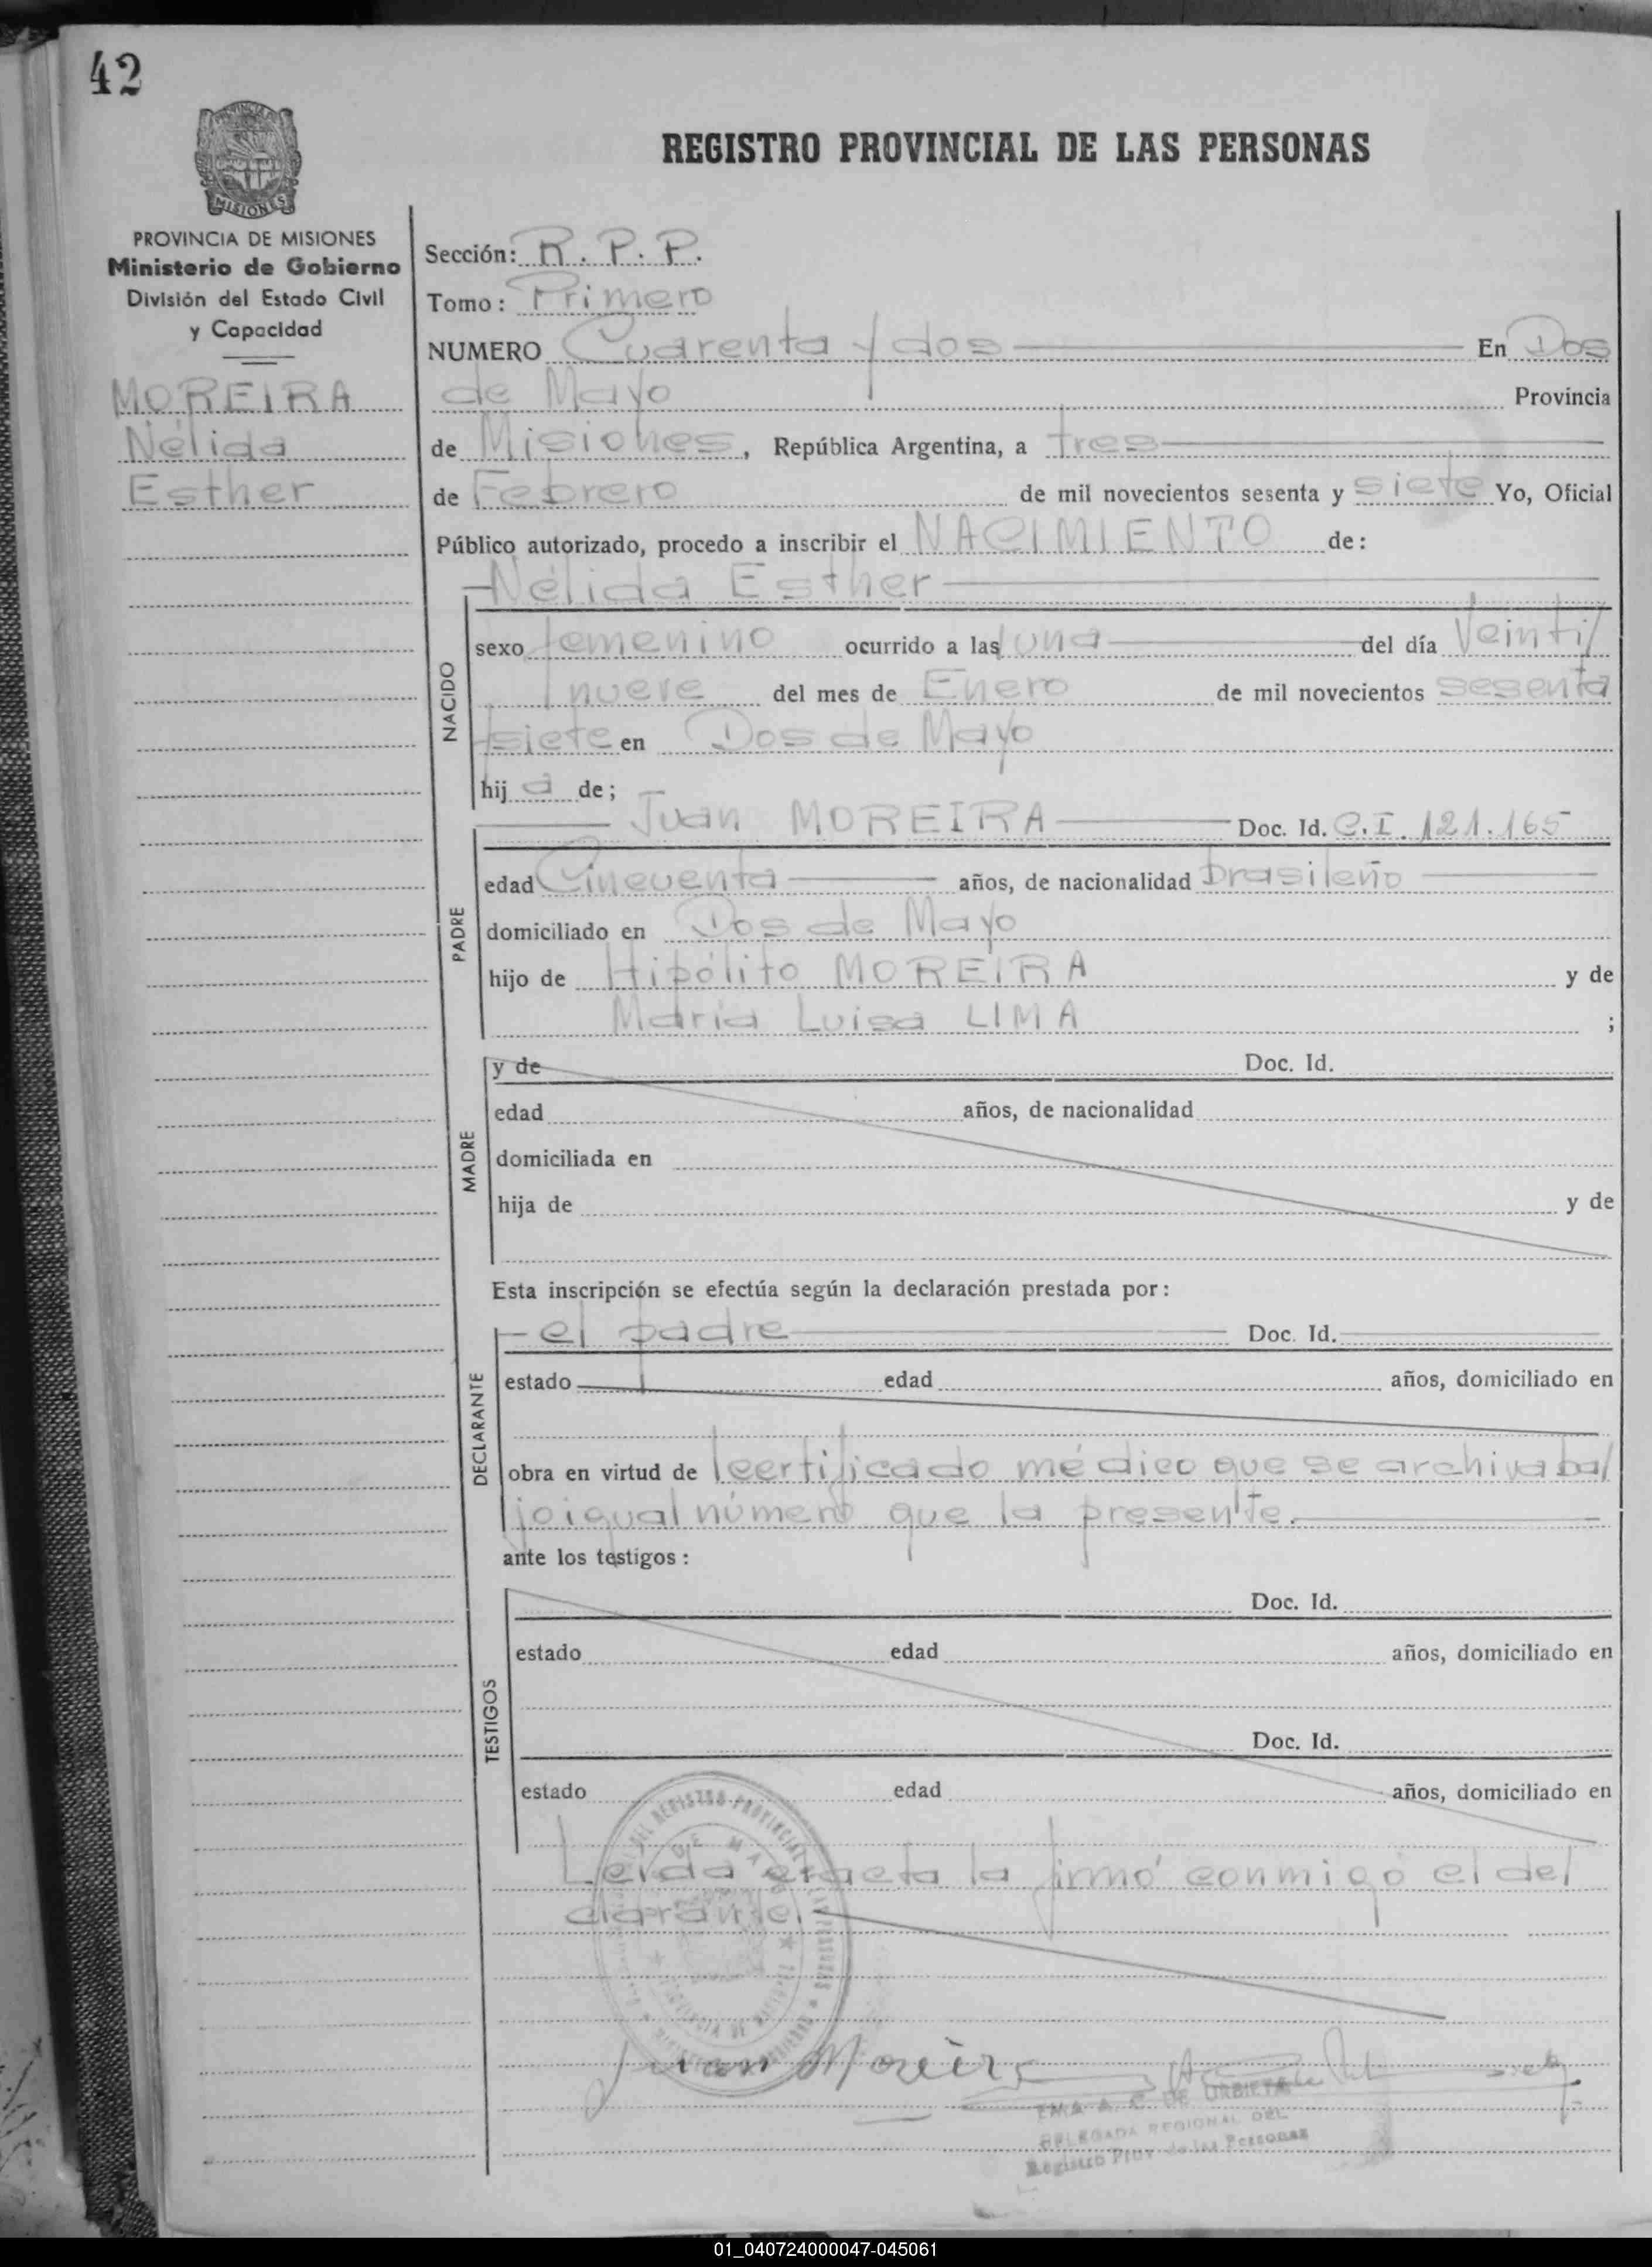 42
REGISTRO PROVINCIAL DE LAS PERSONAS
MISIONES
PROVINCIA DE MISIONES
Ministerio de Gobierno
División del Estado Civil
y Capacidad
MOREIRA
Nélida
Esther
Sección: R. P. P.
Tomo: Primero
NUMERO Cuarenta y dos En Dos
de Mayo Provincia
de Misiones, República Argentina, a tres
de Febrero de mil novecientos sesenta y siete Yo, Oficial
Público autorizado, procedo a inscribir el NACIMIENTO de:
Nélida Esther
NACIDO
sexo femenino ocurrido a las una del día Veinti
nueve del mes de Enero de mil novecientos sesenta
siete en Dos de Mayo
hij a de;
PADRE
Juan MOREIRA Doc. Id. C.I. 121.165
edad Cincuenta años, de nacionalidad brasileño
domiciliado en Dos de Mayo
hijo de Hipólito MOREIRA y de
María Luisa LIMA ;
MADRE
y de Doc. Id.
edad años, de nacionalidad
domiciliada en
hija de y de
Esta inscripción se efectúa según la declaración prestada por:
DECLARANTE
el padre Doc. Id.
estado edad años, domiciliado en
obra en virtud de certificado médico que se archiva ba
jo igual número que la presente.
ante los testigos:
TESTIGOS
Doc. Id.
estado edad años, domiciliado en
Doc. Id.
estado edad años, domiciliado en
Leída el acta la firmó conmigo el de
clarante
Juan Moreira
EMA A. C. DE URBIETA
DELEGADA REGIONAL DEL
Registro Prov. de las Personas
01_040724000047-045061